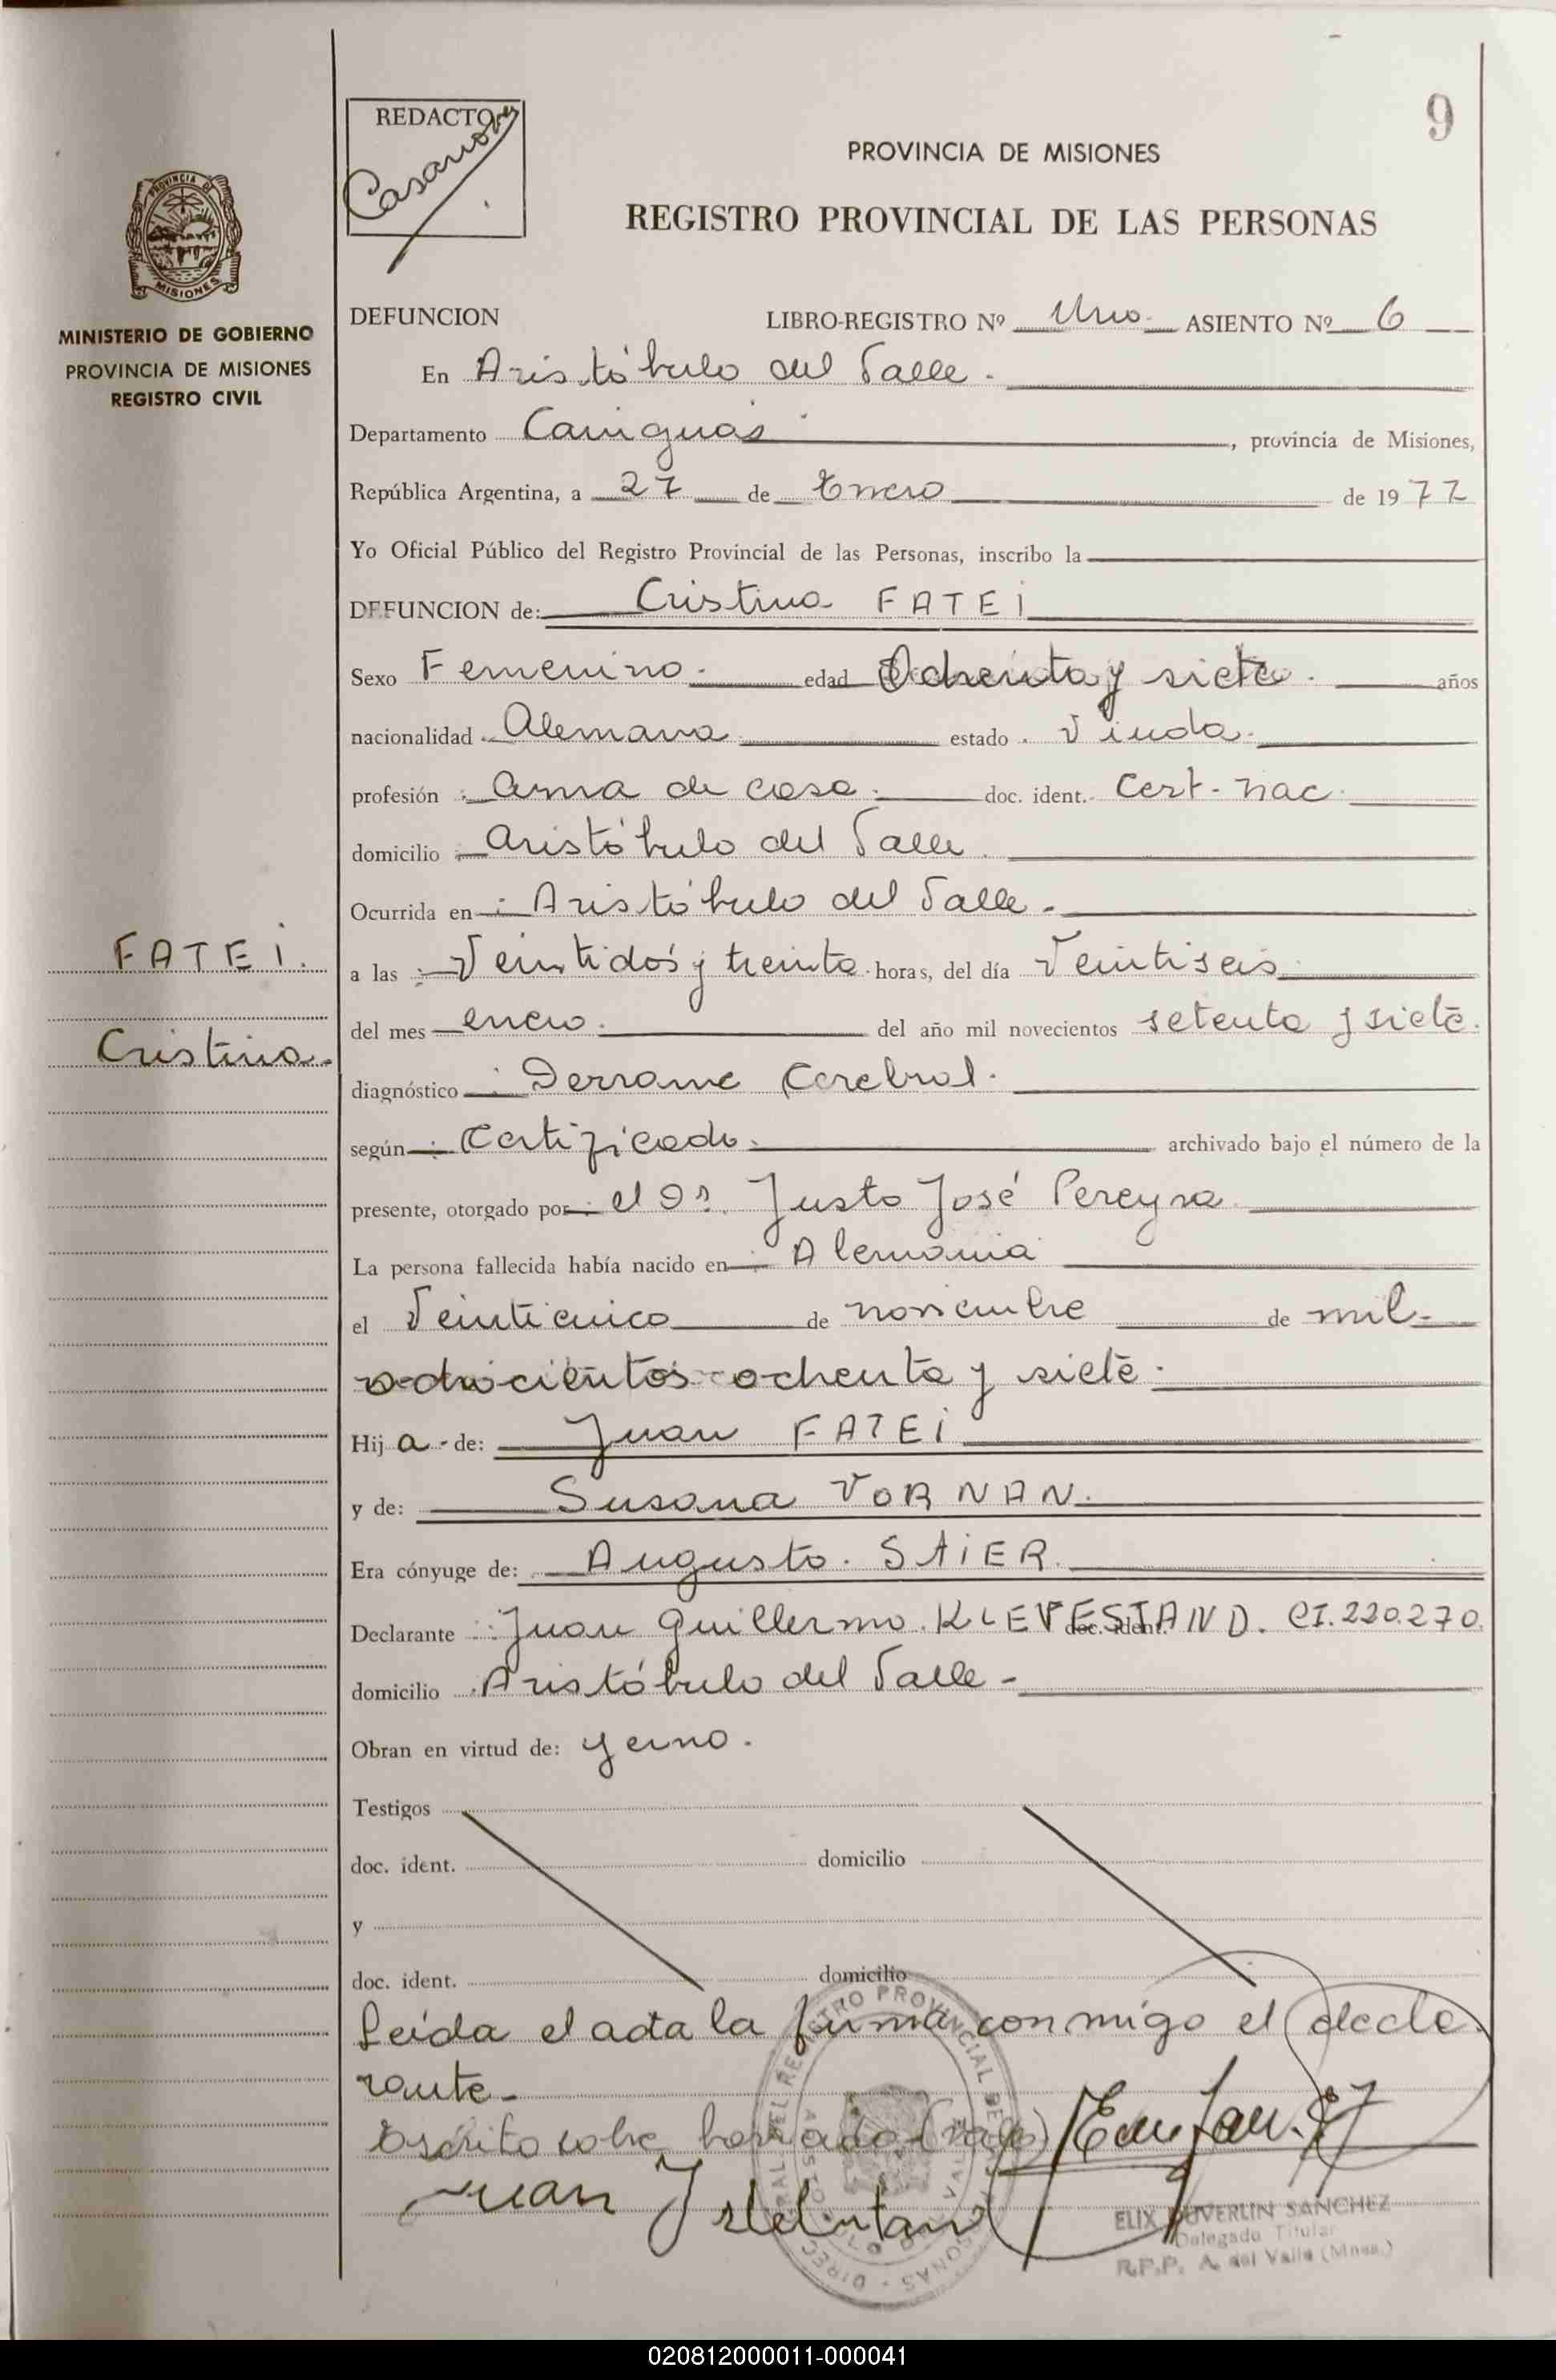 9
REDACTO
Casanova
PROVINCIA DE MISIONES
REGISTRO PROVINCIAL DE LAS PERSONAS
PROVINCIA DE
MISIONES
MINISTERIO DE GOBIERNO
PROVINCIA DE MISIONES
REGISTRO CIVIL
DEFUNCION LIBRO-REGISTRO Nº Uno. ASIENTO Nº 6
En Aristóbulo del Valle.
Departamento Cainguás, provincia de Misiones,
República Argentina, a 27 de Enero de 1977
Yo Oficial Público del Registro Provincial de las Personas, inscribo la
DEFUNCION de: Cristina FATEI
Sexo Femenino. edad Ochenta y siete. años
nacionalidad Alemana estado Viuda.
profesión Ama de casa. doc. ident. Cert. nac.
domicilio Aristóbulo del Valle.
Ocurrida en: Aristóbulo del Valle.
FATEI.
a las: Veintidós y treinta. horas, del día Veintiseis
del mes enero. del año mil novecientos setenta y siete.
Cristina.
diagnóstico: Derrame Cerebral.
según: Certificado. archivado bajo el número de la
presente, otorgado por: el Dr. Justo José Pereyra
La persona fallecida había nacido en: Alemania
el Veinticinco de noviembre de mil
ochocientos ochenta y siete.
Hija de: Juan FATEI
y de: Susana VORNAN.
Era cónyuge de: Augusto. STIER.
Declarante: Juan Guillermo. KLEVESTAND. doc. ident. CI. 220.270.
domicilio Aristóbulo del Valle
Obran en virtud de: yerno.
Testigos
doc. ident. domicilio
y
doc. ident. domicilio
Leída el acta la firma conmigo el decla
rante.
Escrito sobre borrado
Juan
ELIX DUVERLIN SANCHEZ
Delegado Titular
R.P.P. A. del Valle (Mnes.)
020812000011-000041